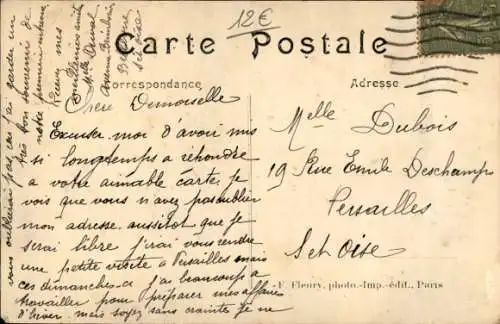 12€
Carte Postale
Correspondance
Adresse
Chère Demoiselle
Excuser moi d'avoir mis
si longtemps a rehondre
a votre aimable carte, je
vois que vous n'avez pas oublier
mon adresse. aussitot que je
serai libre j'irai vous rendre
une petite visite a Versailles mais
ces dimanches-ci j'ai beaucoup a
travailler pour préparer mes affaires
d'hiver. mais soyez sans crainte je ne
vous oublierai pas, car j'ai garder un
très bon souvenir de
notre première entrevue
Recevez mes
meilleures amitiés
Melle
Melle Dubois
19 Rue Emile Deschamps
Versailles
S et Oise
F. Fleury, photo.-Imp.-édit., Paris